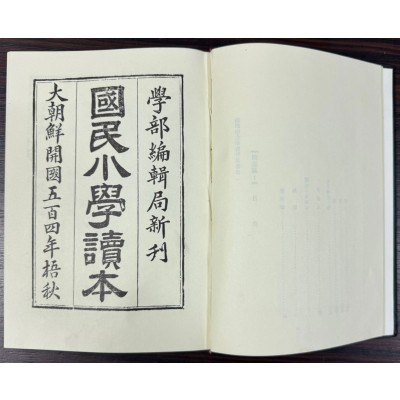 學部編輯局新刊
國民小學讀本
大朝鮮開國五百四年梧秋